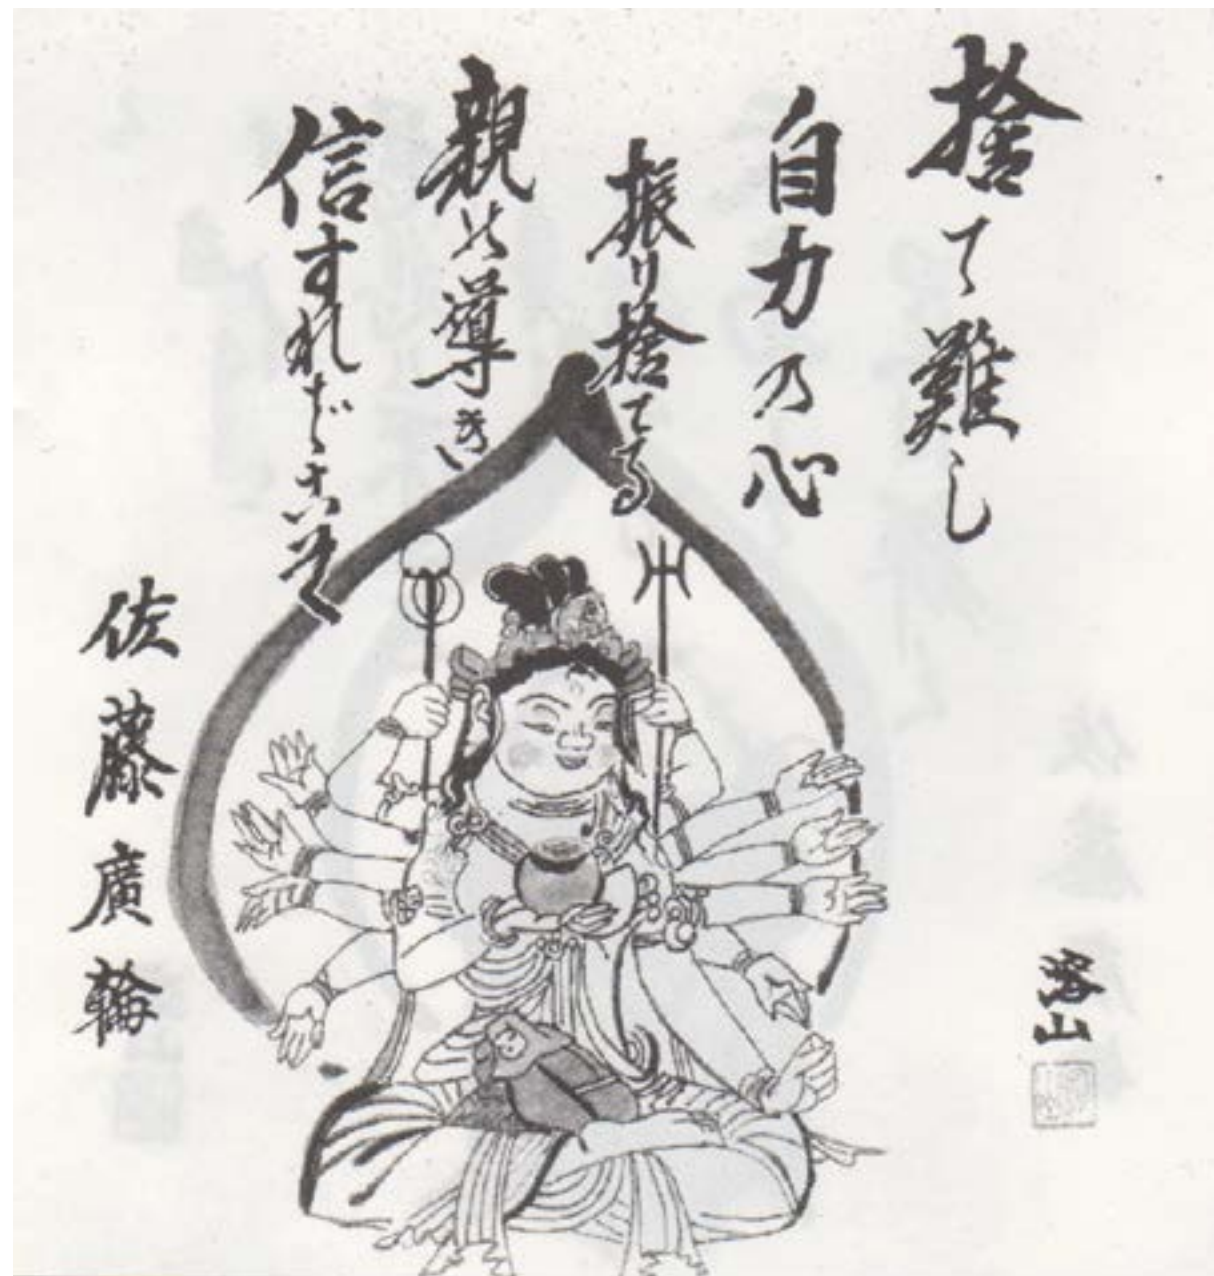 捨て難し
自力乃心
振り捨てる
親の導き
信すればこそ
佐藤廣輪
溶山